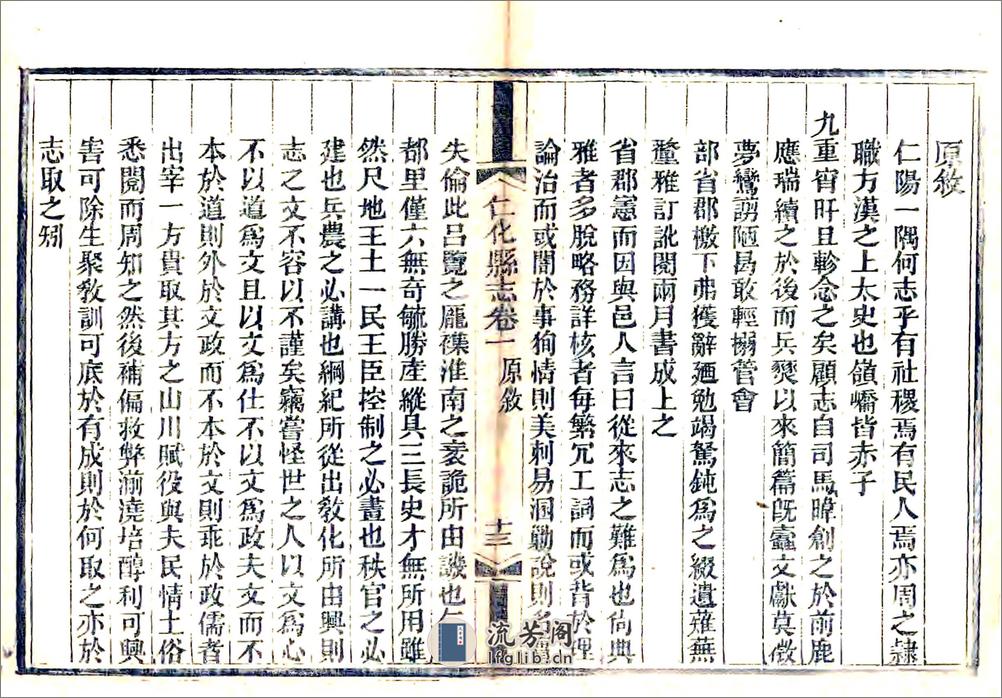 原敘
仁陽一隅何志乎有社稷焉有民人焉亦周之隸
職方漢之上太史也領嶠皆赤子
九重宵旰且軫念之矣顧志自司馬暐創之於前鹿
應瑞續之於後而兵燹以來簡篇旣蠹文獻莫徵
夢鸞謭陋曷敢輕搦管會
部省郡檄下弗獲辭廼勉竭駑鈍爲之綴遺薙蕪
釐雅訂訛閱兩月書成上之
省郡憲而因與邑人言曰從來志之難爲也尙典
雅者多脫略務詳核者每繁冗工詞而或背於理
論治而或闇於事徇情則美刺易溷勦說則
仁化縣志卷一 原敘 十三
失倫此呂覽之龎襍淮南之袤詭所由譏也
都里僅六無奇毓勝產縱具三長史才無所用雖
然尺地王土一民王臣控制之必畫也秩官之必
建也兵農之必講也綱紀所從出敎化所由興則
志之文不容以不謹矣竊嘗怪世之人以文爲心
不以道爲文且以文爲仕不以文爲政夫文而不
本於道則外於文政而不本於文則乖於政儒者
出宰一方貴取其方之山川賦役與夫民情土俗
悉閱而周知之然後補偏救弊湔澆培醇利可興
害可除生聚敎訓可底於有成則於何取之亦於
志取之矧
流芳阁
lfglib.cn